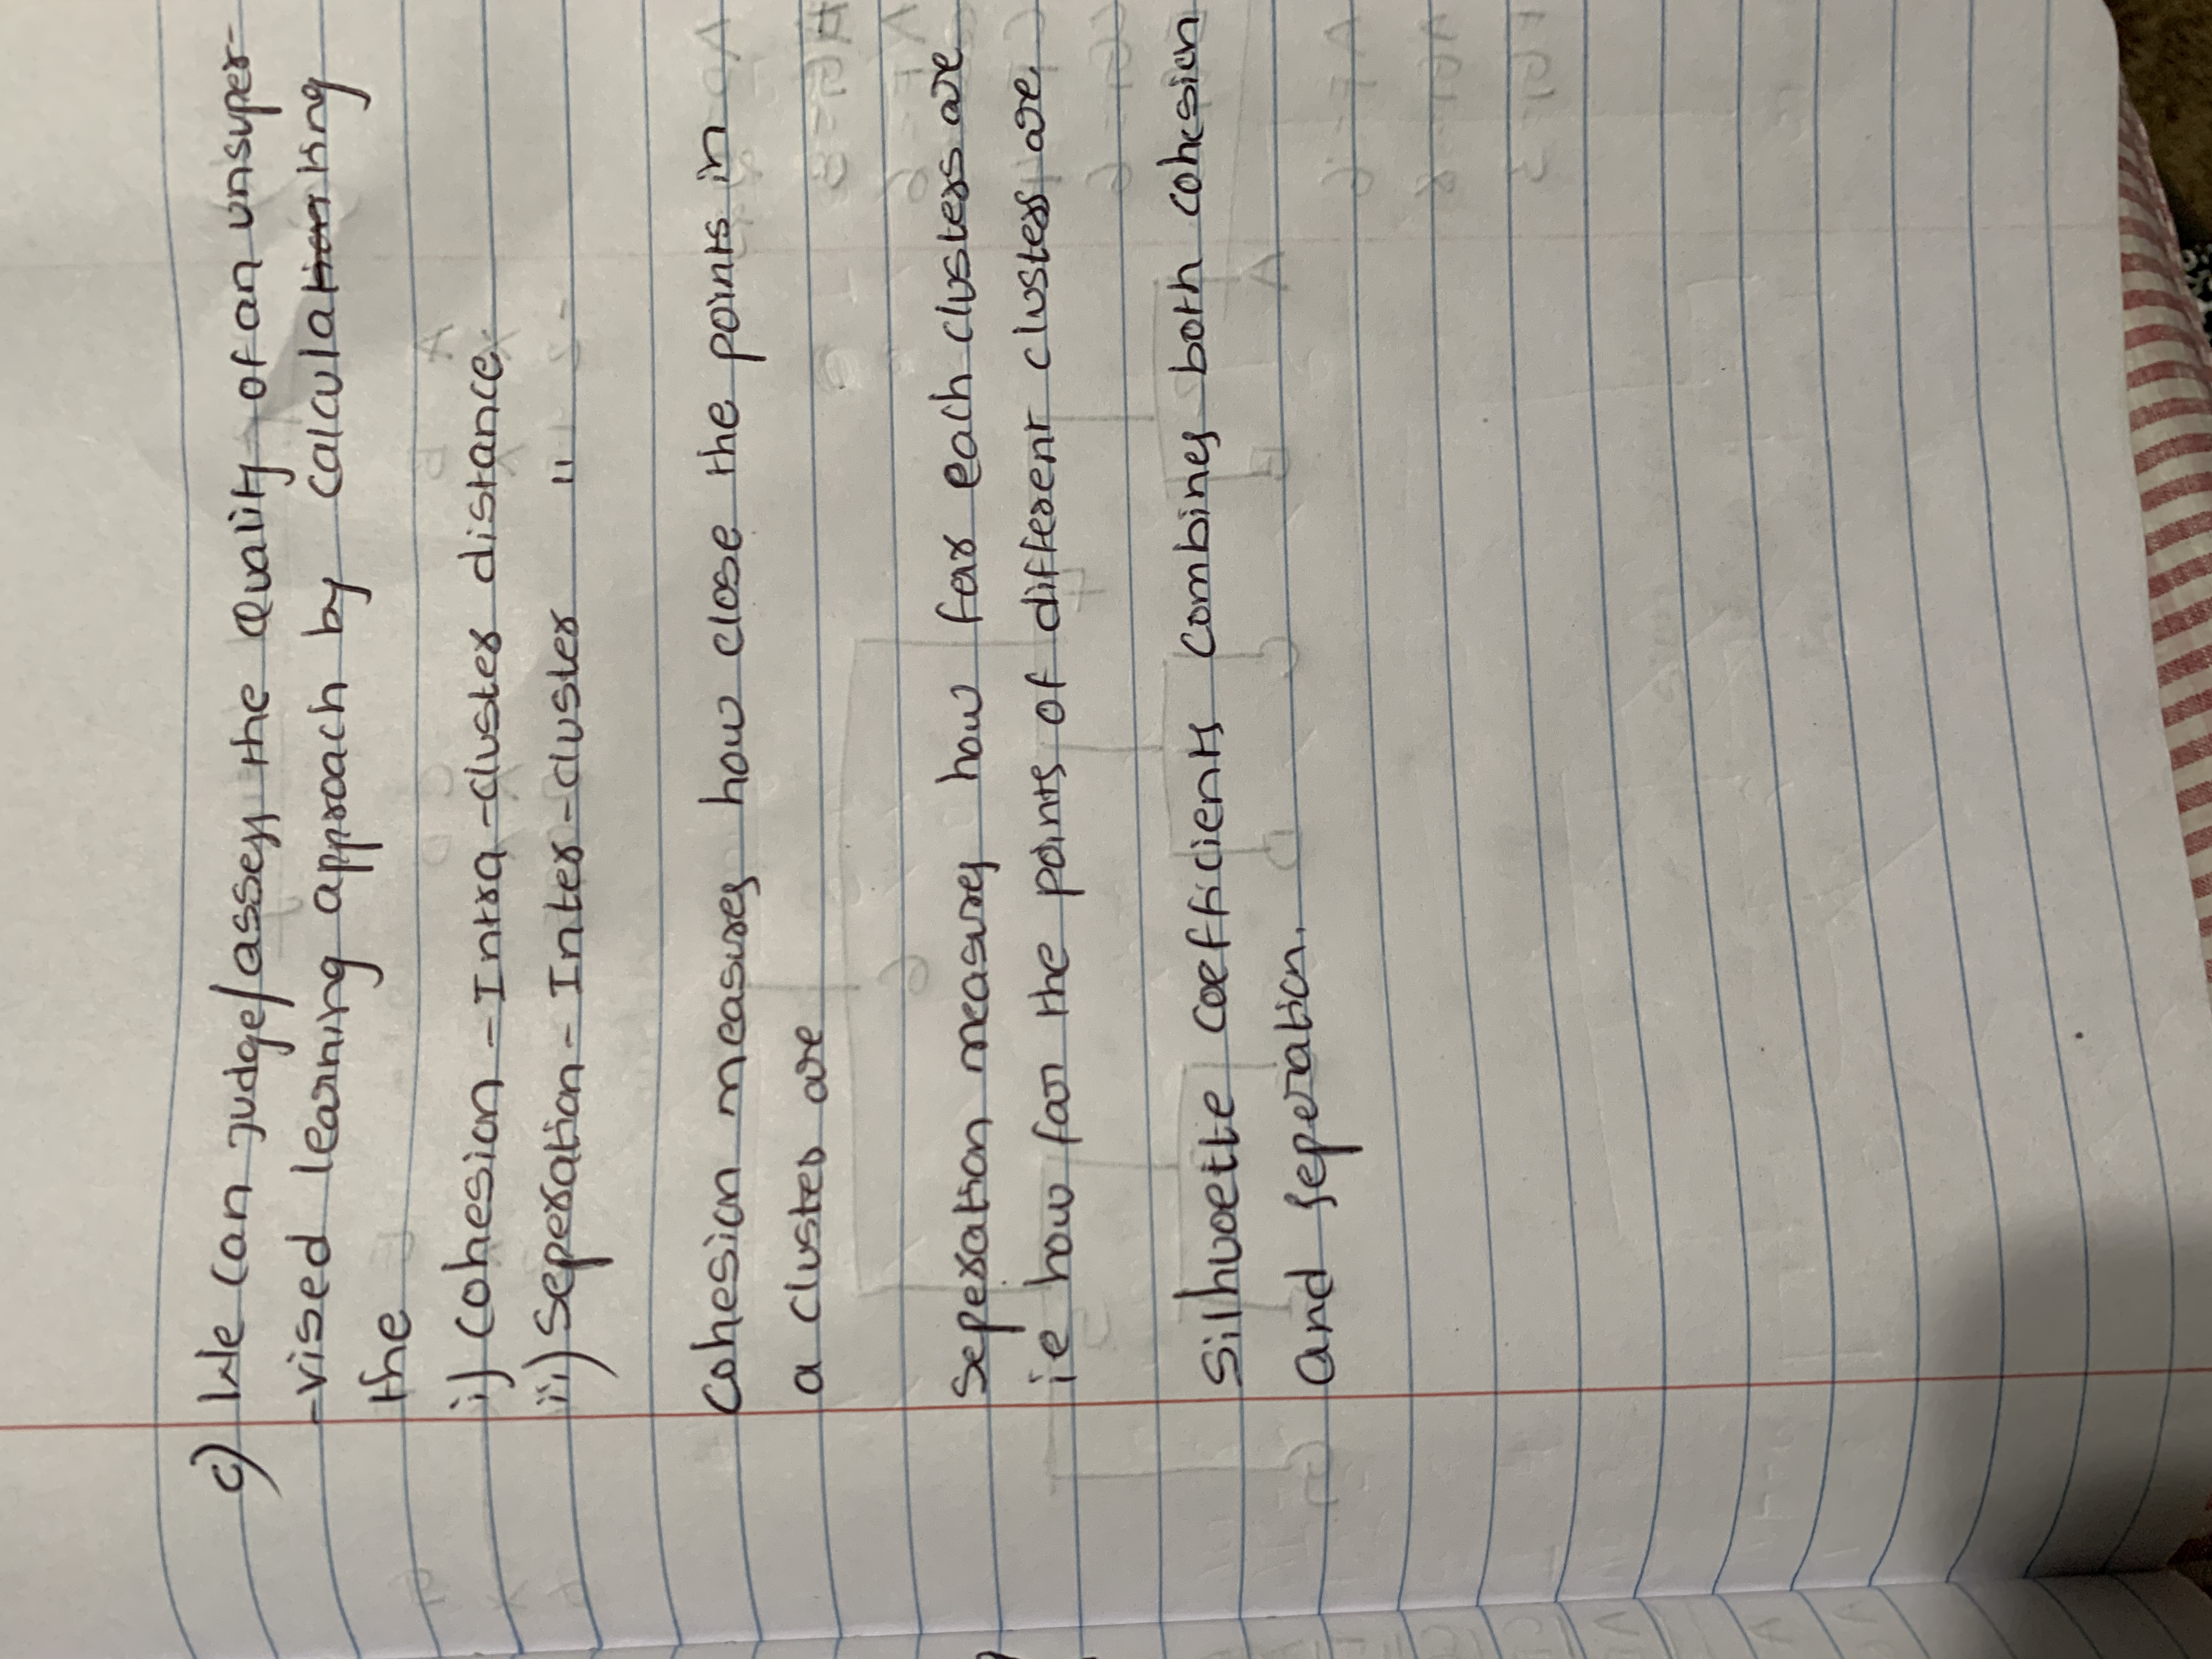 c) We can judge/assess the Quality of an unsuper-
-vised learning approach by calculating
the
i) Cohesion - Intra-cluster distance
ii) Seperation - Inter-cluster "
Cohesion measures how close the points in
a cluster are
Seperation measures how far each clusters are
ie how far the points of different clusters are
Silhuoette coefficients combines both cohesion
and seperation.